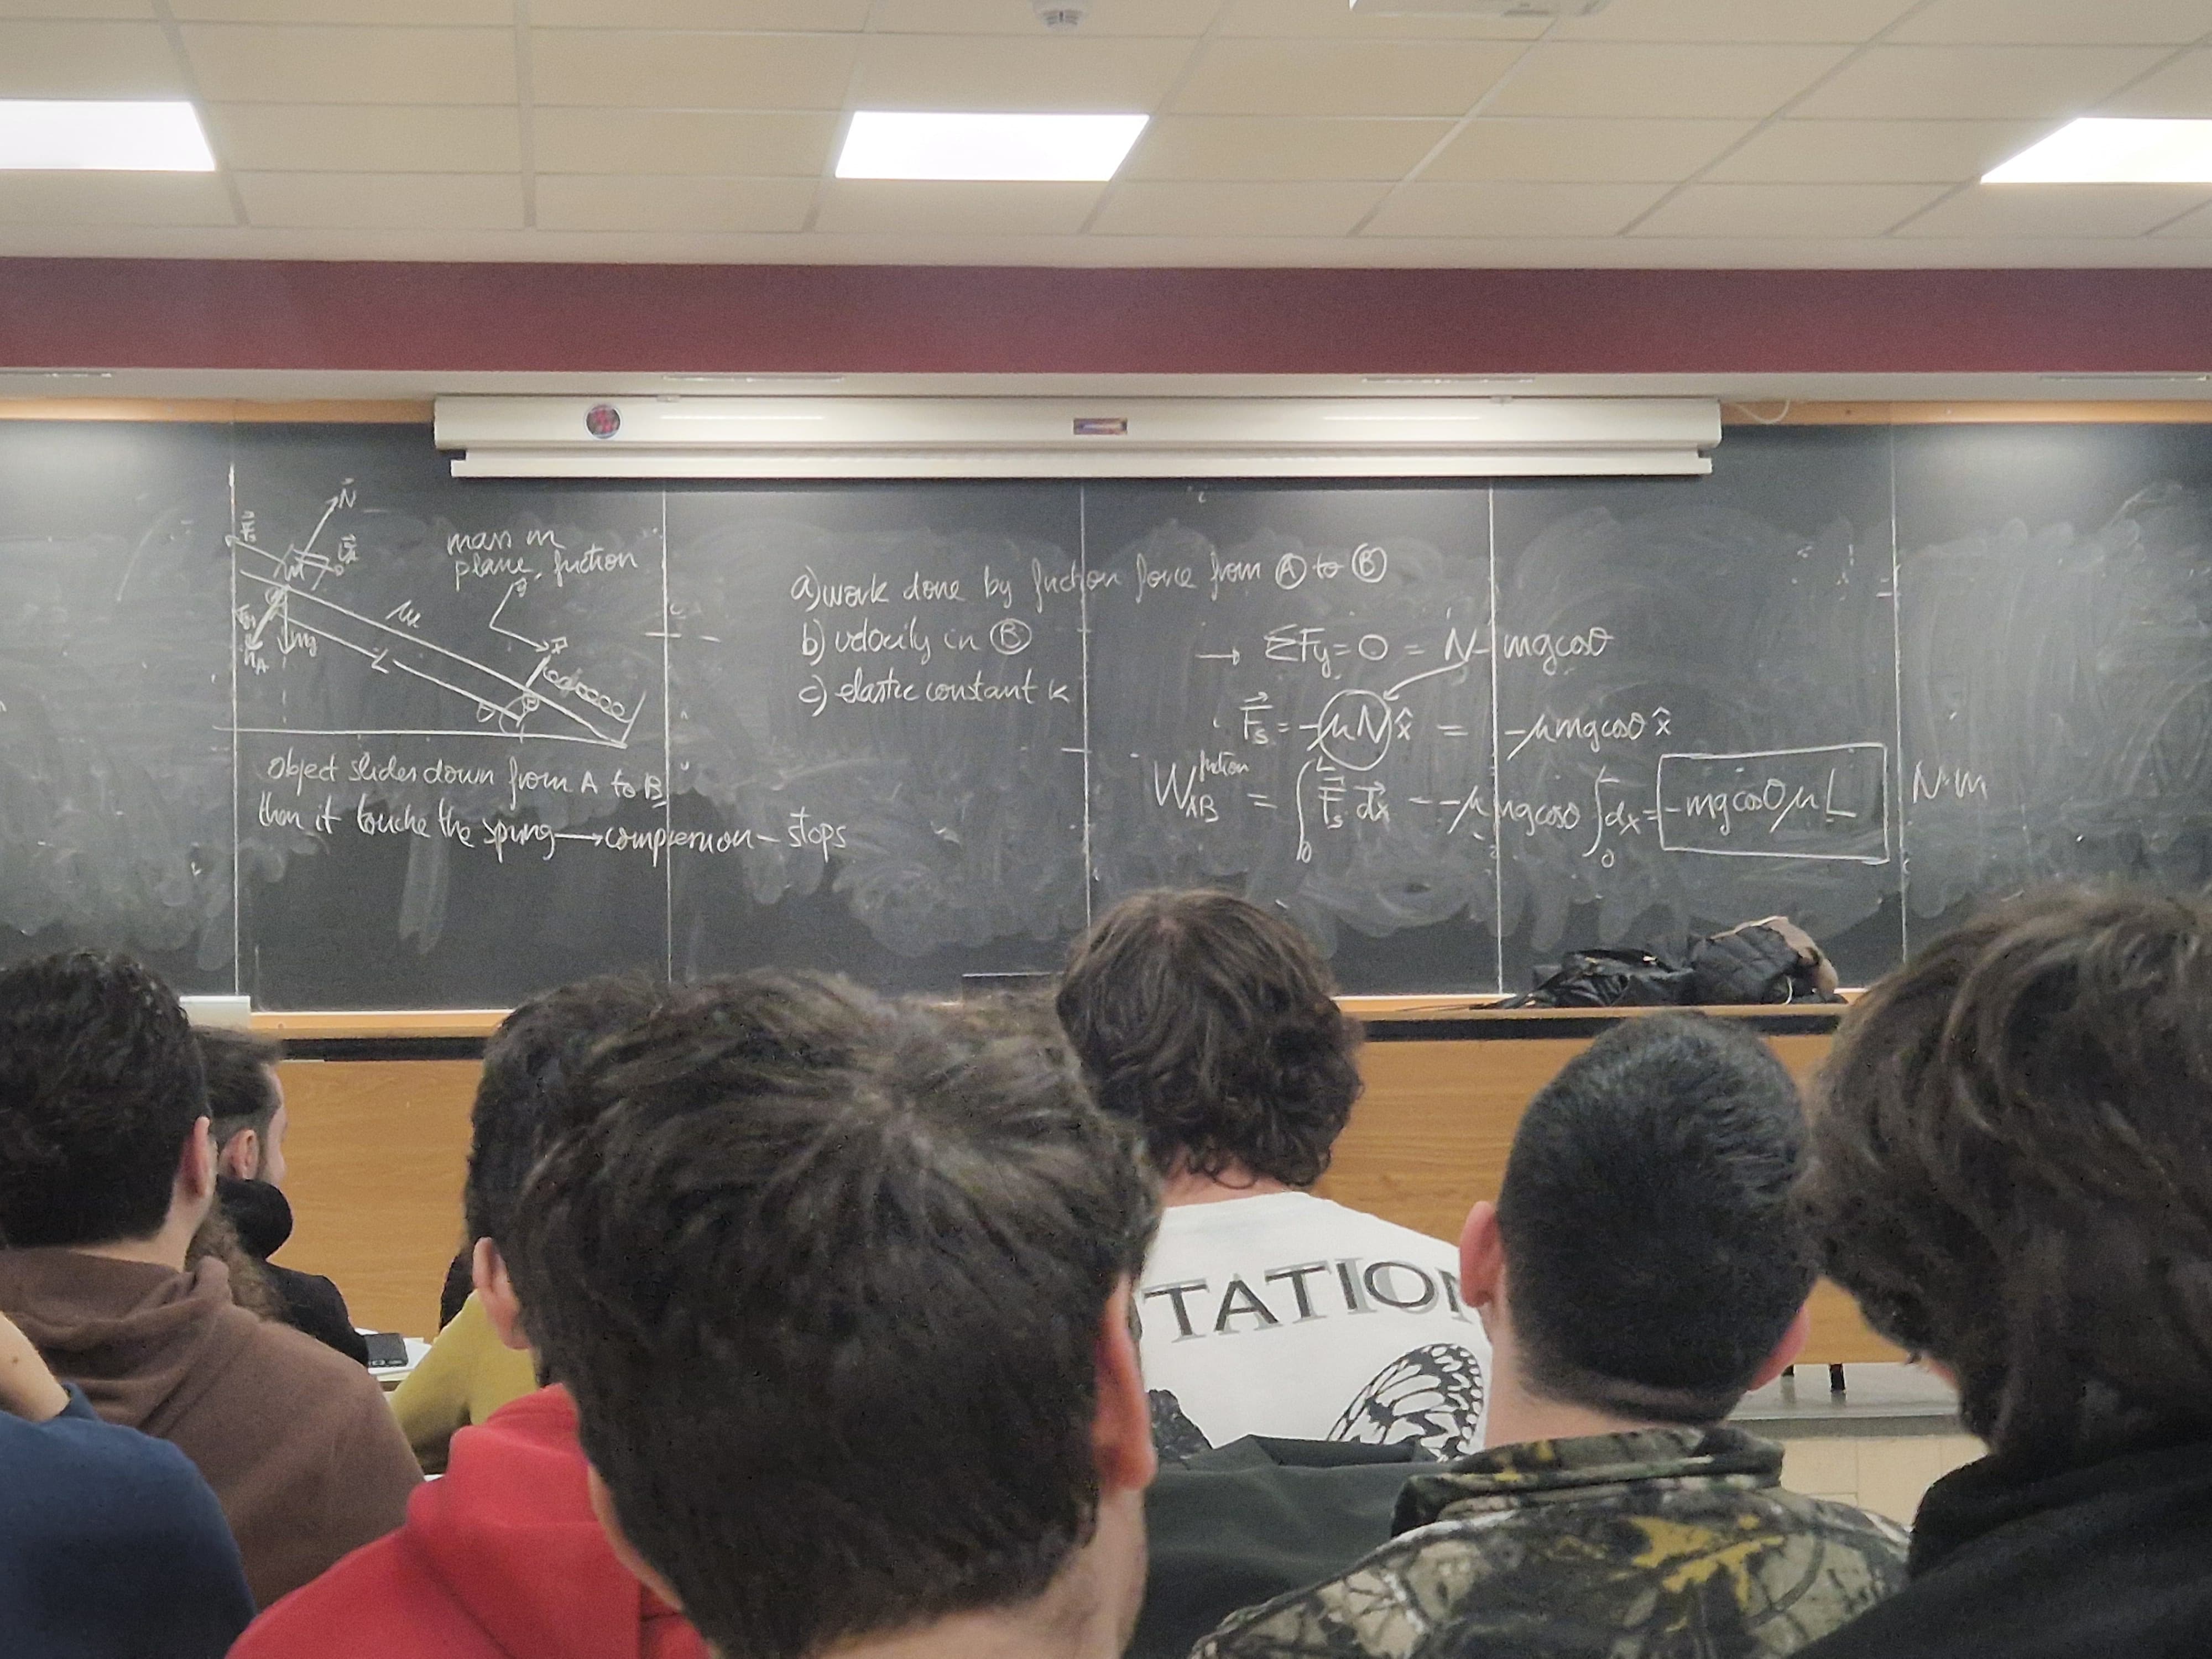 N
Fs
m
mg
hA
μ
L
θ
B
mass m
plane, friction
object slides down from A to B
then it touche the spring → compression – stops
a) work done by friction force from A to B
b) velocity in B
c) elastic constant k
→ ΣFy = 0 = N - mgcosθ
F⃗s = -μN x̂ = -μmgcosθ x̂
W_AB^friction = ∫₀ᴸ F⃗s d⃗x = -μmgcosθ ∫₀ᴸ dx = -mgcosθμL N·m
TATION